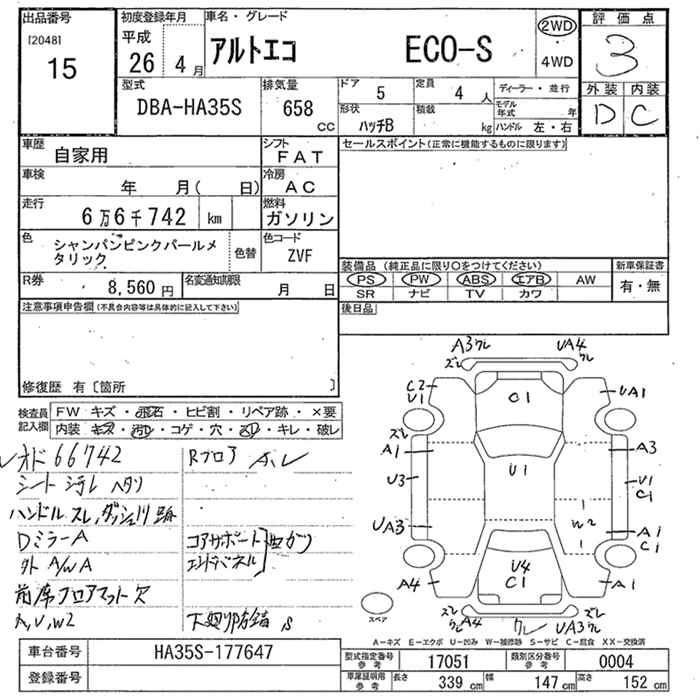 出品番号
[2048]
15
初度登録年月
平成
26 4 月
車名・グレード
アルトエコ ECO-S
2WD
4WD
評価点
3
外装 内装
D C
型式
DBA-HA35S
排気量
658 CC
ドア 5
定員 4 人
形状 ハッチB
積載 kg
ディーラー・並行
モデル年式 年
ハンドル 左・右
車歴
自家用
シフト
FAT
セールスポイント(正常に機能するものに限ります)
車検
年 月( 日)
冷房
AC
走行
6万6千742 km
燃料
ガソリン
色
シャンパンピンクパールメ
タリック
色替
色コード
ZVF
R券
8,560円
名変通知期限
月 日
装備品(純正品に限り○をつけてください)
PS PW ABS エアB AW
SR ナビ TV カワ
新車保証書
有・無
後日品
注意事項申告欄(不具合内容等は具体的に記入して下さい)
修復歴 有〔箇所 〕
検査員
記入欄
FW キズ・飛石・ヒビ割・リペア跡・×要
内装 キズ・汚レ・コゲ・穴・凹・キレ・破レ
オド 66742
シート汚レ ヘタリ
ハンドル スレ,ダッシュ
Dミラー A
外 A/W A
前席フロアマット欠
A,V,W2
Rフロア
コアサポート
エンドパネル
曲がり
下廻り防錆 S
A3 クレ
ズレ
UA4
クレ
C2
U1
C1
UA1
ズレ
A1
A3
U3
U1
U1
C1
UA3
W2
A1
C1
U4
C1
A4
A1
スペア
ズレ
クレ A4
クレ
ズレ
UA3 クレ
A-キズ E-エクボ U-凹み W-補修跡 S-サビ C-腐食 XX-交換済
車台番号 HA35S-177647
登録番号
型式指定番号
参考
17051
類別区分番号
参考
0004
車庫証明用
参考
長さ 339 cm
幅 147 cm
高さ 152 cm